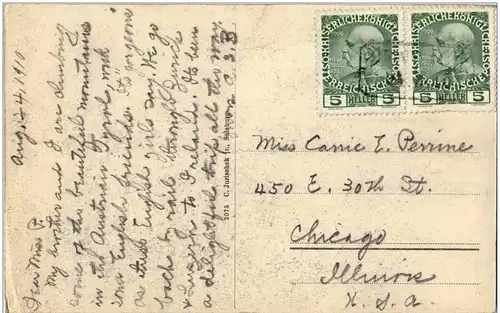 Aug. 24, 1910
Dear Miss P.
My brother and I are climbing
some of the beautiful mountains
in the Austrian Tyrol, with
some English friends. It's "gorgeous"
as these English girls say. We go
back by rail through Zurich
& Luzern to Ireland. Its been
a delightful trip all this way.
C. S. B.
2075 C. Jurischek
Miss Carrie E. Perrine
450 E. 30th St.
Chicago
Illinois
U. S. A.
KAISERLICHE KÖNIGLICHE
ÖSTERREICHISCHE POST
5 HELLER 5
KAISERLICHE KÖNIGLICHE
ÖSTERREICHISCHE POST
5 HELLER 5